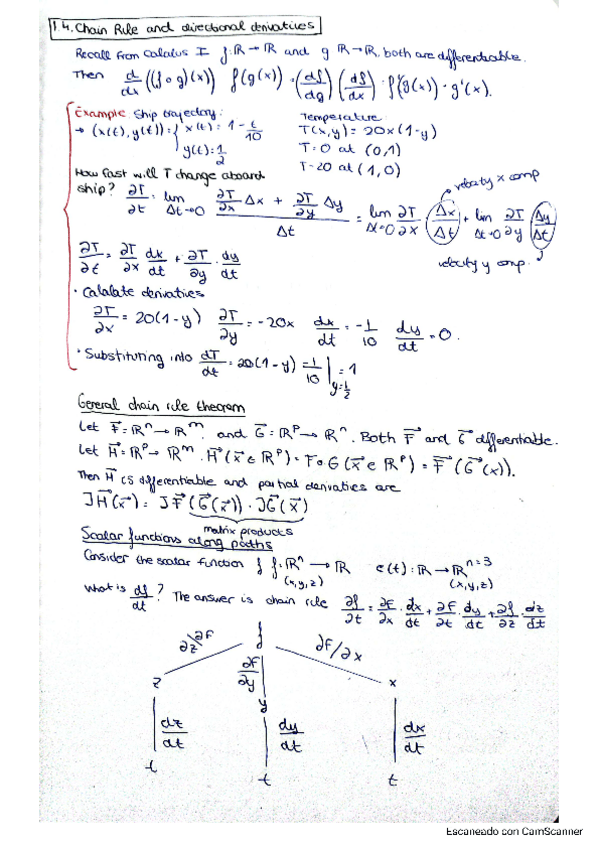 1.4. Chain Rule and directional derivatives
Recall from Calculus I f:ℝ→ℝ and g ℝ→ℝ, both are differentiable.
Then d/dx ((f∘g)(x)) f(g(x)) · (df/dg) (dg/dx) · f'(g(x)) · g'(x).
Example: Ship trajectory:
→ (x(t), y(t)) = { x(t) = 1 - t/10
y(t) = 1/2
Temperature:
T(x,y) = 20x(1-y)
T=0 at (0,1)
T=20 at (1,0)
How fast will T change aboard
ship? ∂T/∂t = lim Δt→0 (∂T/∂x Δx + ∂T/∂y Δy)/Δt = lim Δt→0 ∂T/∂x (Δx/Δt) + lim Δt→0 ∂T/∂y (Δy/Δt)
velocity x comp
velocity y comp.
∂T/∂t = ∂T/∂x dx/dt + ∂T/∂y · dy/dt
· Calalate derivaties
∂T/∂x = 20(1-y) ∂T/∂y = -20x dx/dt = -1/10 dy/dt = 0.
· Substituting into dT/dt = 20(1-y) = 1/10 | y=1/2 = 1
General chain rule theorem
Let F⃗=ℝⁿ→ℝᵐ. and G⃗=ℝᵖ→ℝⁿ. Both F⃗ and G⃗ differentiable.
Let H⃗=ℝᵖ→ℝᵐ. H⃗(x⃗∈ℝᵖ) = F∘G(x⃗∈ℝᵖ) = F⃗(G⃗(x)).
Then H⃗ is differentiable and partial derivaties are
JH⃗(x⃗) = JF⃗(G⃗(x⃗)) · JG⃗(x⃗)
matrix products
Scalar functions along paths
Consider the scalar function f f:ℝⁿ→ℝ c(t):ℝ→ℝⁿ n=3
(x,y,z) (x,y,z)
What is df/dt? The answer is chain rule ∂f/∂t = ∂F/∂x · dx/dt + ∂F/∂t · dy/dt + ∂f/∂z · dz/dt
f
∂z\∂F ∂F/∂y ∂F/∂x
z y x
dz/dt dy/dt dx/dt
t t t
Escaneado con CamScanner